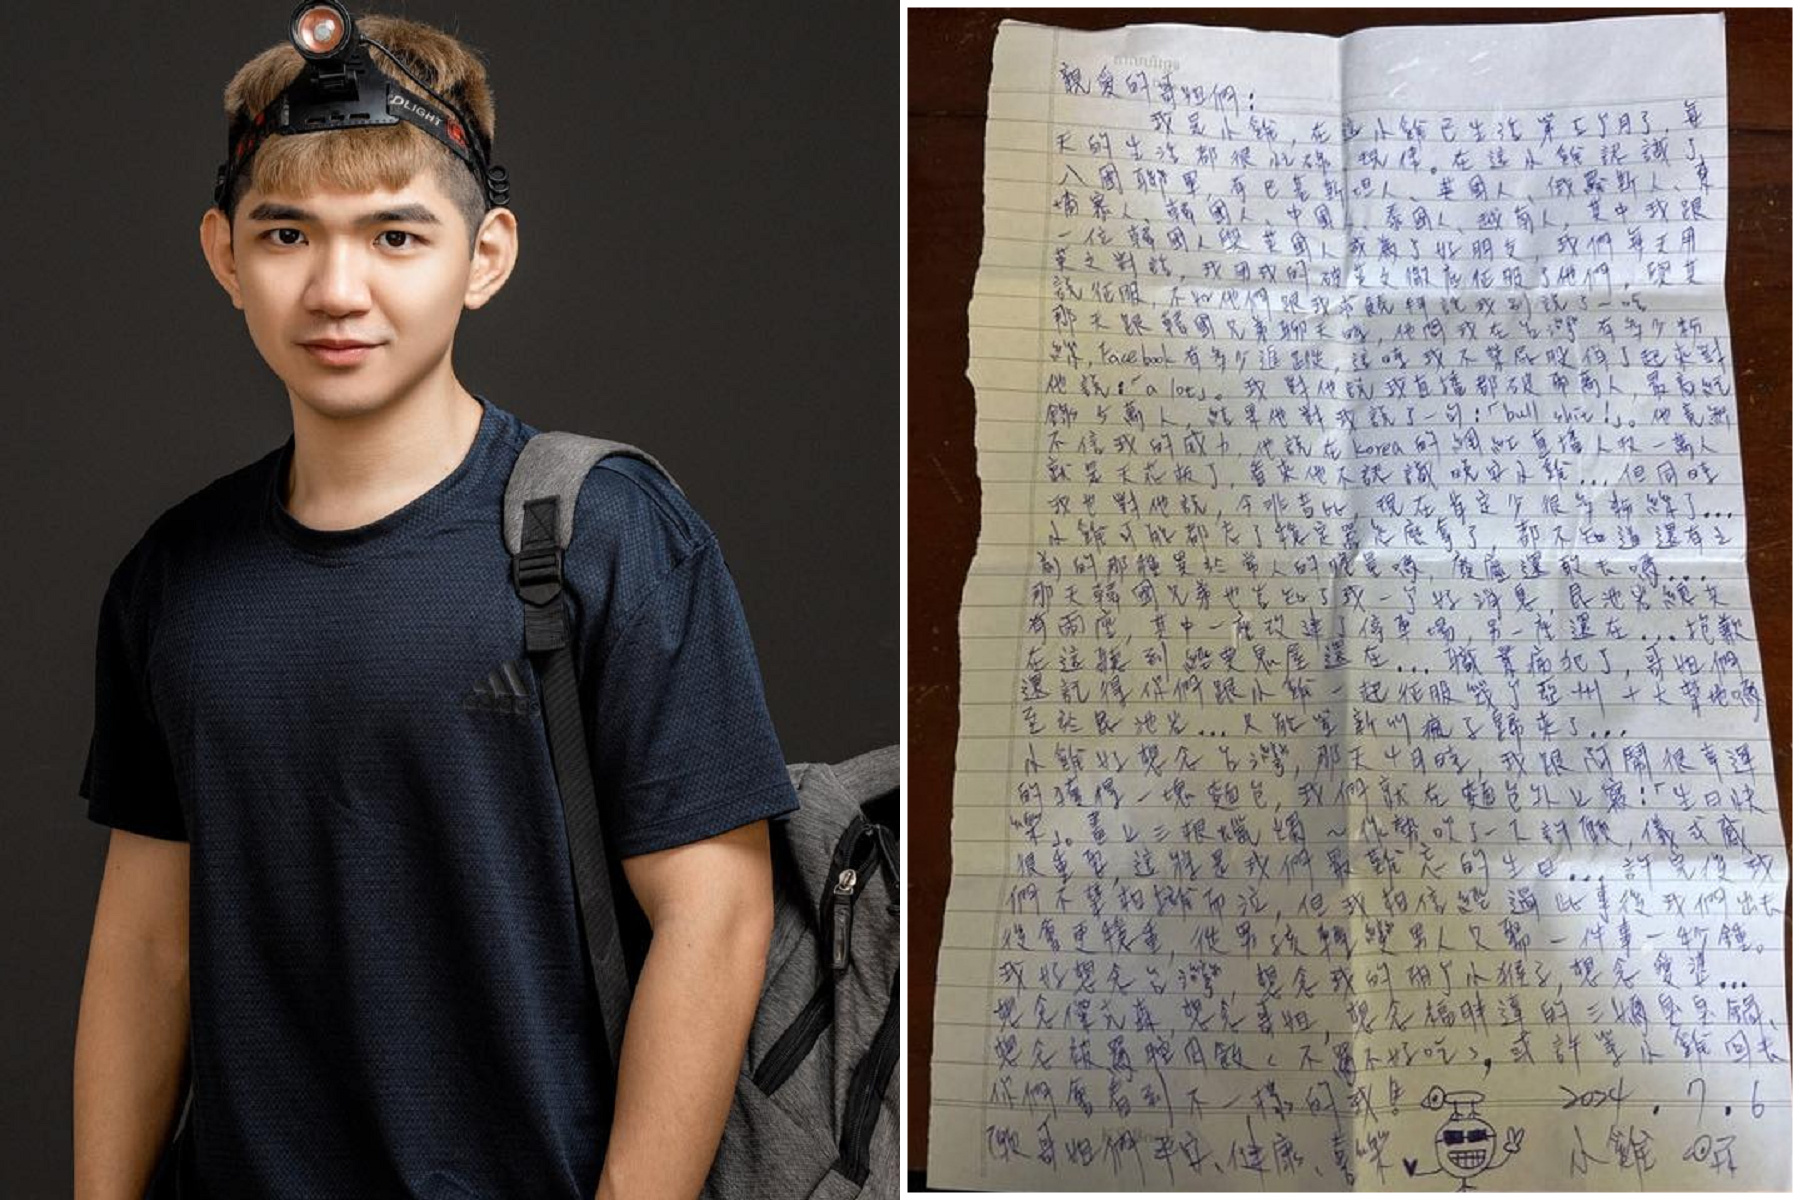 DLIGHT
親愛的哥姐們:
我是小館，在這小館已生活第五個月了，每
天的生活都很忙碌 規律。在這小館認識了
八國聯軍，有巴基斯坦人、英國人、俄羅斯人、柬
埔寨人、韓國人、中國人、泰國人、越南人，其中我跟
一位韓國人與英國人成為了好朋友，我們每天用
英文對話，我用我的破英文徹底征服了他們，與其
說征服，不如他們跟我求饒拜託我別說了一哈
那天跟韓國兄弟聊天時，他問我在台灣有多少粉
絲，Facebook有多少追蹤，這時我不禁屁股俏了起來對
他說:「a lot」。我對他說我直播都破兩萬人，最高紀
錄5萬人，結果他對我說了一句:「bull shit!」。他竟然
不信我的威力，他說在Korea的網紅直播人數一萬人
就是天花板了，看來他不認識晚安小雞...但同時
我也對他說，今非昔比，現在肯定少很多粉絲了...
小雞可能都忘了穩定器怎麼拿了，都不知道還有之
前的那種異於常人的膽量嗎，廢墟還敢去嗎...
那天韓國兄弟也告知了我一個好消息，昆池岩總共
有兩座，其中一座改建了停車場，另一座還在...抱歉
在這聽到 鬼屋還在...職業病犯了，哥姐們
還記得你們跟小雞一起征服幾個亞州十大聖地嗎
至於昆池岩...只能當新州瘋子歸來了...
小雞好想念台灣，那天4月時，我跟阿鬧很幸運
的獲得一塊麵包，我們就在麵包外上寫:「生日快
樂」。畫上三根蠟燭～作勢吹了一下許願，儀式感
很重要，這將是我們最難忘的生日...許完後我
們不禁相擁而泣，但我相信經過此事後我們出去
後會更穩重，從男孩轉變男人只需一件事一秒鐘。
我好想念台灣，想念我的兩個小猴子，想念愛混...
想念僕充麻，想念哥姐，想念福胖達的三媽臭臭鍋、
想念被罵配同飯（不罵不好吃），或許等小雞回去
你們會看到不一樣的我
2024.7.6
願哥姐們平安、健康、喜樂
小雞